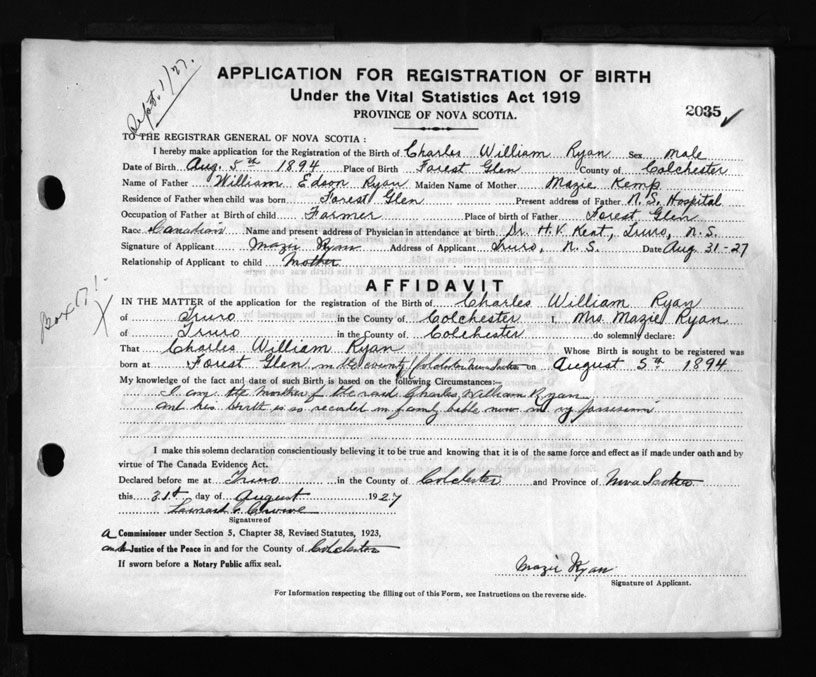 Sept. 1/27.
APPLICATION FOR REGISTRATION OF BIRTH
Under the Vital Statistics Act 1919
PROVINCE OF NOVA SCOTIA.
2035
TO THE REGISTRAR GENERAL OF NOVA SCOTIA:
I hereby make application for the Registration of the Birth of Charles William Ryan Sex Male
Date of Birth Aug. 5th 1894 Place of Birth Forest Glen County of Colchester
Name of Father William Edson Ryan Maiden Name of Mother Mazie Kemp
Residence of Father when child was born Forest Glen Present address of Father N.S. Hospital
Occupation of Father at Birth of child Farmer Place of birth of Father Forest Glen
Race Canadian Name and present address of Physician in attendance at birth Dr. H.V. Kent, Truro, N.S.
Signature of Applicant Mazie Ryan Address of Applicant Truro, N.S. Date Aug 31-27
Relationship of Applicant to child Mother
Box 17!
AFFIDAVIT
IN THE MATTER of the application for the registration of the Birth of Charles William Ryan
of Truro in the County of Colchester I, Mrs. Mazie Ryan
of Truro in the County of Colchester do solemnly declare:
That Charles William Ryan Whose Birth is sought to be registered was
born at Forest Glen in the county of Colchester Nova Scotia on August 5th 1894
My knowledge of the fact and date of such Birth is based on the following Circumstances:—
I am the mother of the said Charles William Ryan
and his birth is so recorded in family bible now in my possession
I make this solemn declaration conscientiously believing it to be true and knowing that it is of the same force and effect as if made under oath and by
virtue of The Canada Evidence Act.
Declared before me at Truro in the County of Colchester and Province of Nova Scotia
this 31st day of August 1927
Signature of
A Commissioner under Section 5, Chapter 38, Revised Statutes, 1923,
Justice of the Peace in and for the County of Colchester
If sworn before a Notary Public affix seal.
Mazie Ryan
Signature of Applicant.
For Information respecting the filling out of this Form, see Instructions on the reverse side.